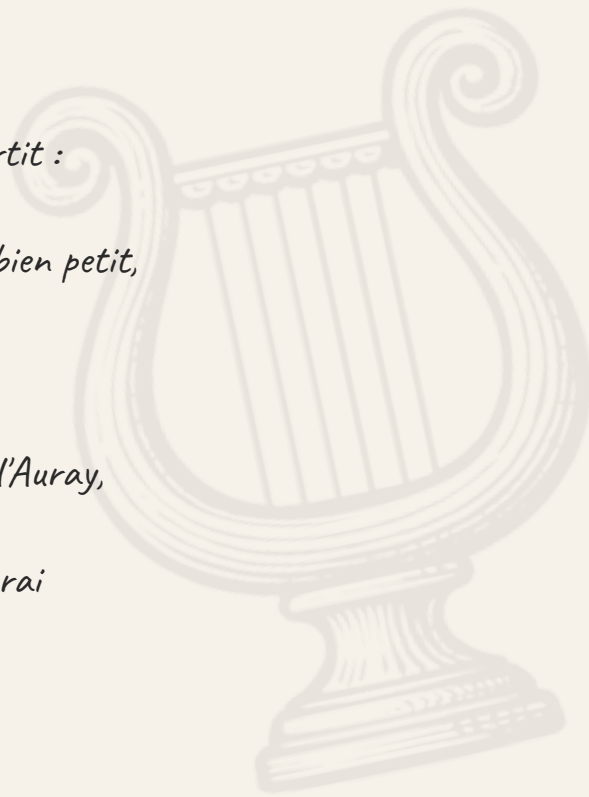 rtit :
bien petit,
d'Auray,
rai